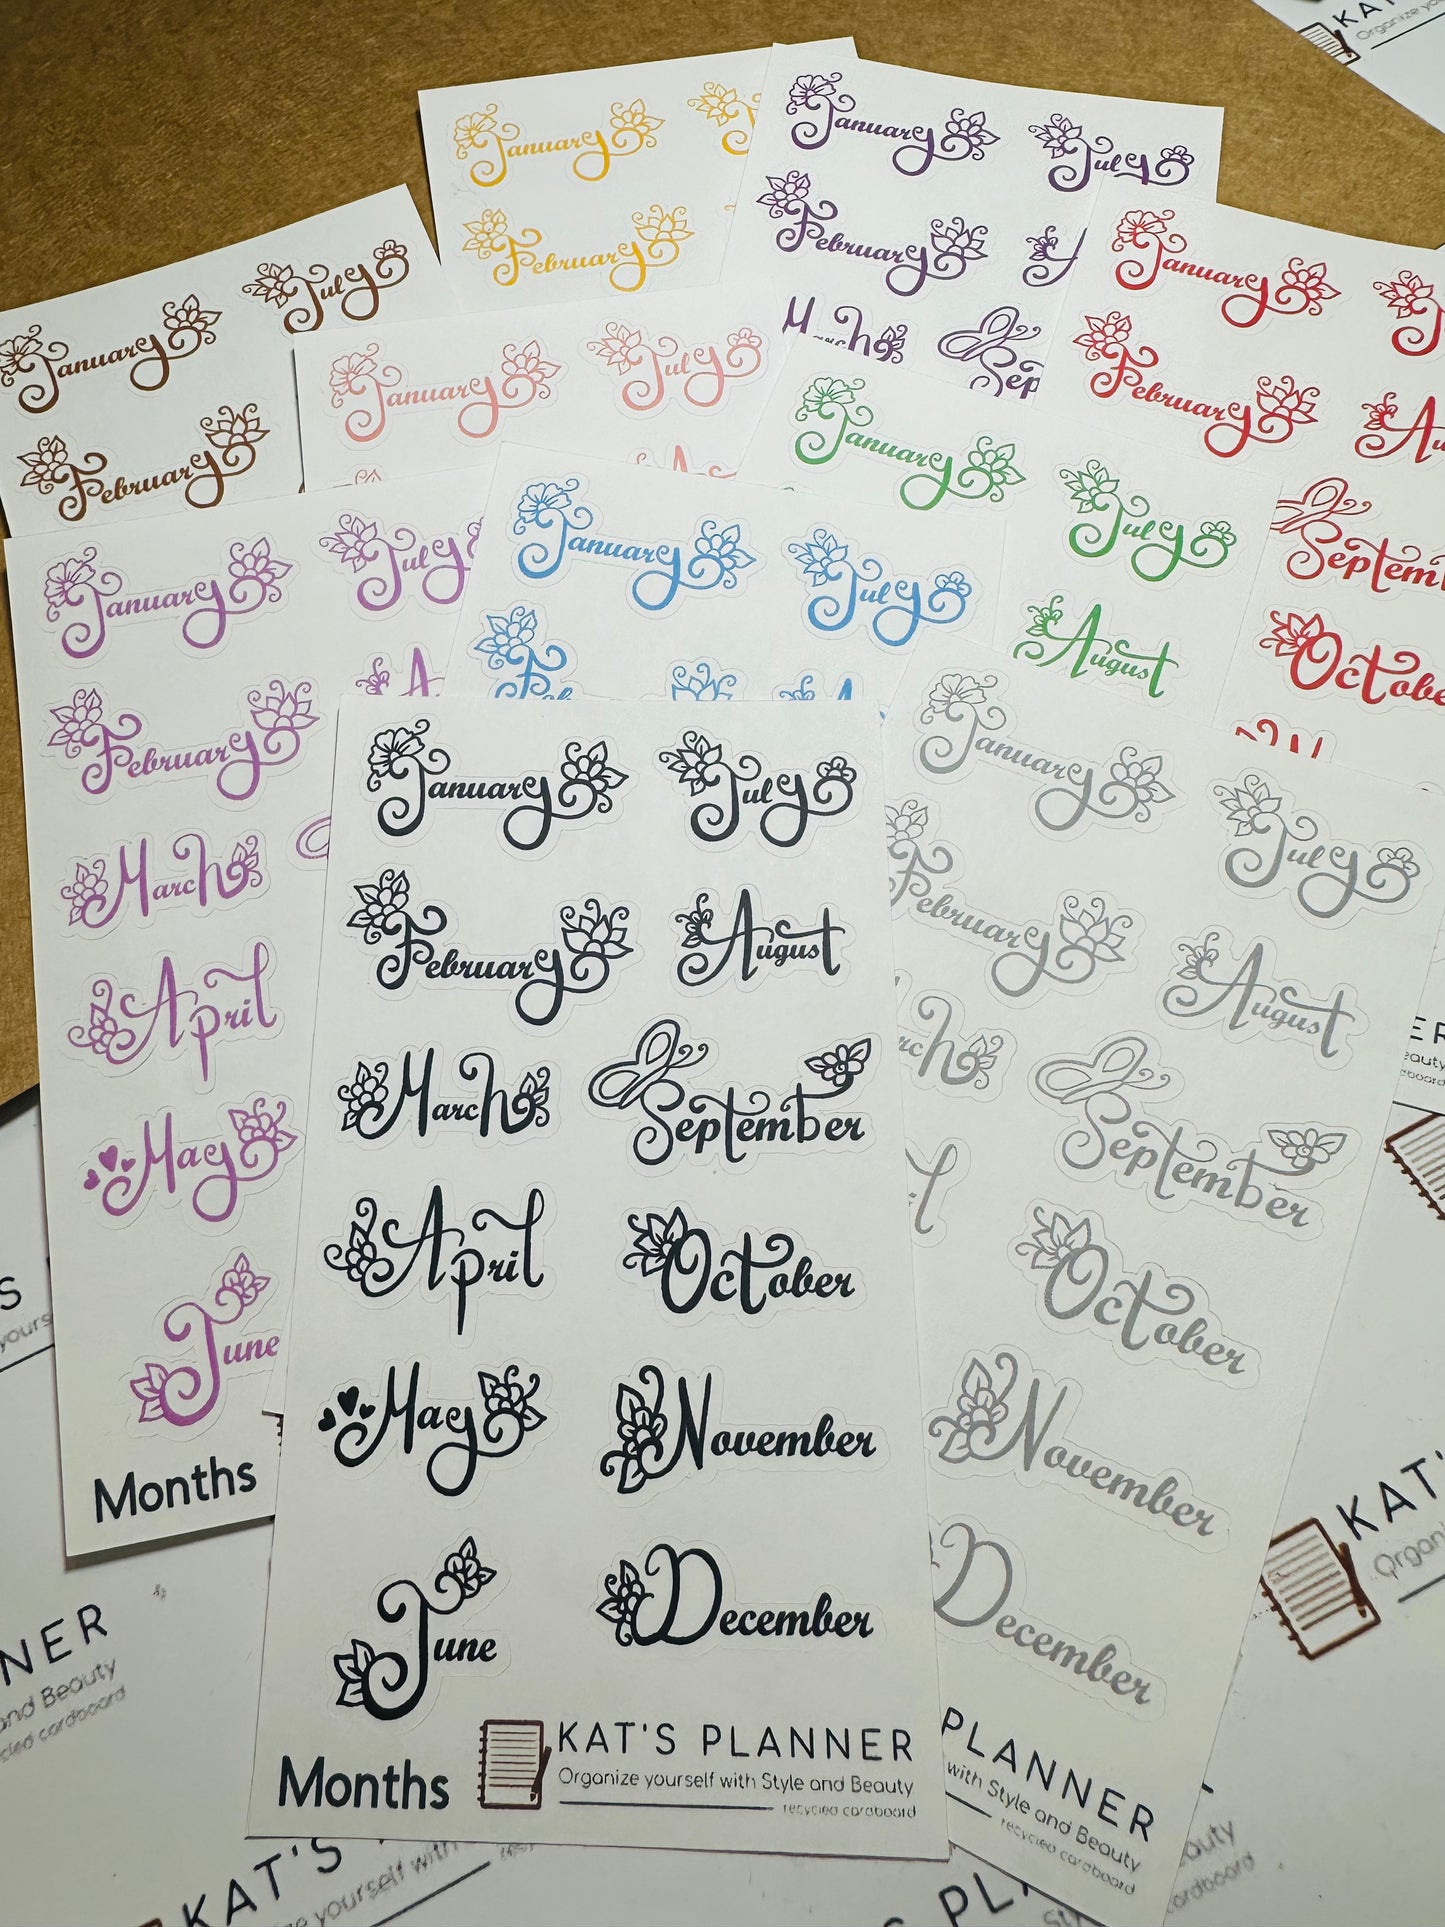 KAT'S
Organize yo
January
January
July
February
February
July
March
Sep
January
January
July
February
Au
Septem
Octobe
January
July
February
January
July
August
January
July
February
March
April
May
June
Months
January
July
January
July
February
August
March
September
April
October
May
November
June
December
Months
KAT'S PLANNER
Organize yourself with Style and Beauty
recycled cardboard
January
July
February
August
rch
September
October
November
December
PLANNER
with Style and Beauty
recycled cardboard
NNER
and Beauty
cled cardboard
KAT'S
PL
KAT'
Organi